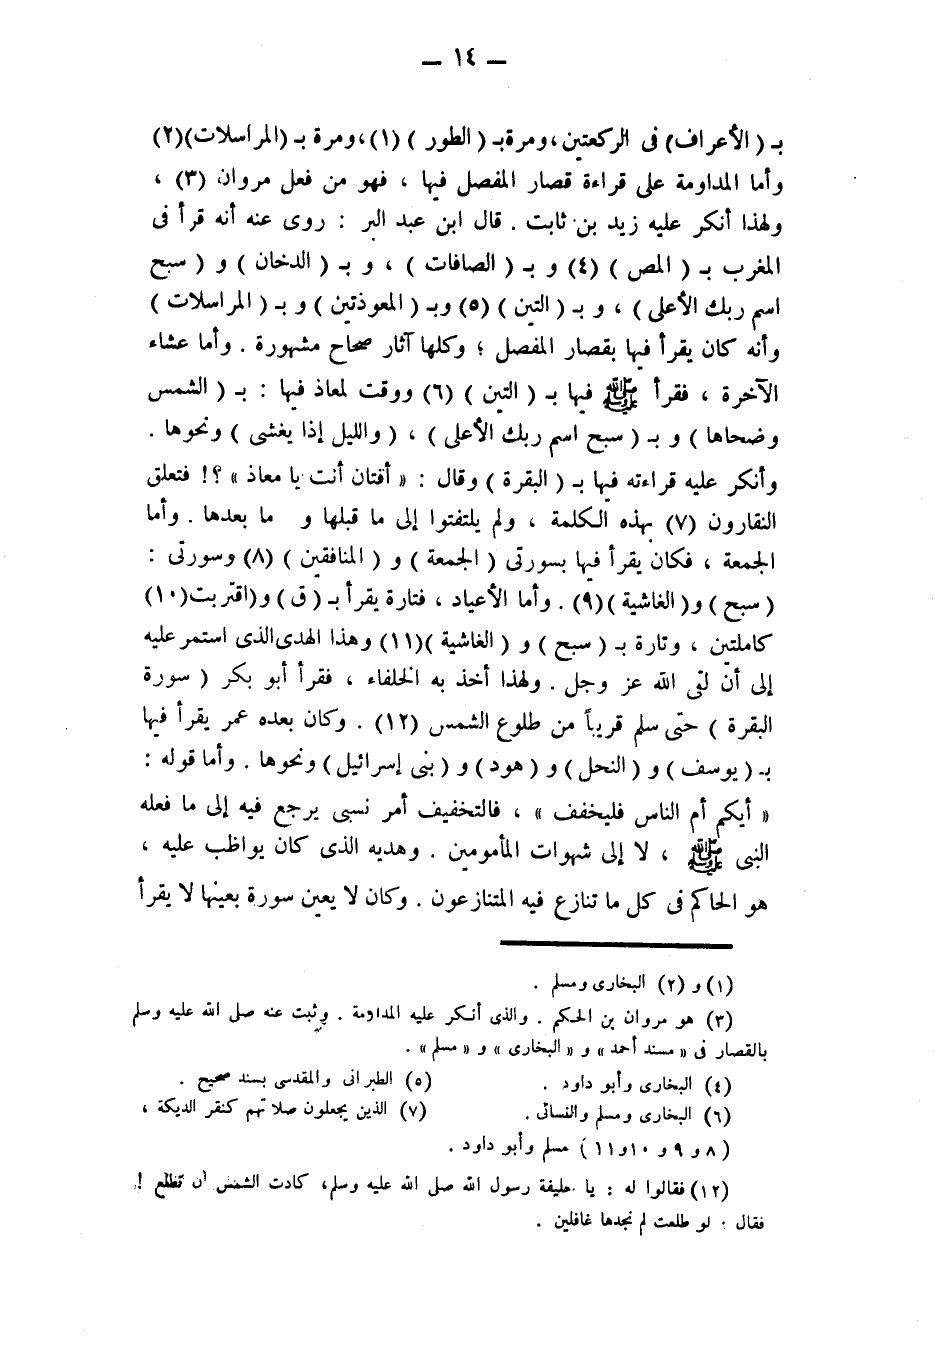 — ١٤ —
بـ ( الأعراف ) فى الركعتين ، ومرة بـ ( الطور ) (١) ، ومرة بـ ( المراسلات ) (٢)
وأما المداومة على قراءة قصار المفصل فيها ، فهو من فعل مروان (٣) ،
ولهذا أنكر عليه زيد بن ثابت . قال ابن عبد البر : روى عنه أنه قرأ فى
المغرب بـ ( المص ) (٤) و بـ ( الصافات ) ، و بـ ( الدخان ) و ( سبح
اسم ربك الأعلى ) ، و بـ ( التين ) (٥) وبـ ( المعوذتين ) و بـ ( المراسلات )
وأنه كان يقرأ فيها بقصار المفصل ؛ وكلها آثار صحاح مشهورة . وأما عشاء
الآخرة ، فقرأ ﷺ فيها بـ ( التين ) (٦) ووقت لمعاذ فيها : بـ ( الشمس
وضحاها ) و بـ ( سبح اسم ربك الأعلى ) ، ( والليل إذا يغشى ) ونحوها .
وأنكر عليه قراءته فيها بـ ( البقرة ) وقال : « أفتان أنت يا معاذ » ؟! فتعلق
النقارون (٧) بهذه الكلمة ، ولم يلتفتوا إلى ما قبلها و ما بعدها . وأما
الجمعة ، فكان يقرأ فيها بسورتى ( الجمعة ) و ( المنافقين ) (٨) وسورتى :
( سبح ) و( الغاشية ) (٩) . وأما الأعياد ، فتارة يقرأ بـ ( ق ) و( اقتربت ) (١٠)
كاملتين ، وتارة بـ ( سبح ) و ( الغاشية ) (١١) وهذا الهدى الذى استمر عليه
إلى أن لقى الله عز وجل . ولهذا أخذ به الخلفاء ، فقرأ أبو بكر ( سورة
البقرة ) حتى سلم قريباً من طلوع الشمس (١٢) . وكان بعده عمر يقرأ فيها
بـ ( يوسف ) و ( النحل ) و ( هود ) و ( بنى إسرائيل ) ونحوها . وأما قوله :
« أيكم أم الناس فليخفف » ، فالتخفيف أمر نسبى يرجع فيه إلى ما فعله
النبى ﷺ ، لا إلى شهوات المأمومين . وهديه الذى كان يواظب عليه ،
هو الحاكم فى كل ما تنازع فيه المتنازعون . وكان لا يعين سورة بعينها لا يقرأ
(١) و (٢) البخارى ومسلم .
(٣) هو مروان بن الحكم . والذى أنكر عليه المداومة . وثبت عنه صلى الله عليه وسلم
بالقصار فى « مسند أحمد » و « البخارى » و « مسلم » .
(٤) البخارى وأبو داود . (٥) الطبرانى والمقدسى بسند صحيح .
(٦) البخارى ومسلم والنسائى . (٧) الذين يجعلون صلاتهم كنقر الديكة ،
( ٨ و ٩ و ١٠ و١١ ) مسلم وأبو داود .
(١٢) فقالوا له : يا خليفة رسول الله صلى الله عليه وسلم ، كادت الشمس أن تطلع !
فقال : لو طلعت لم تجدها غافلين .